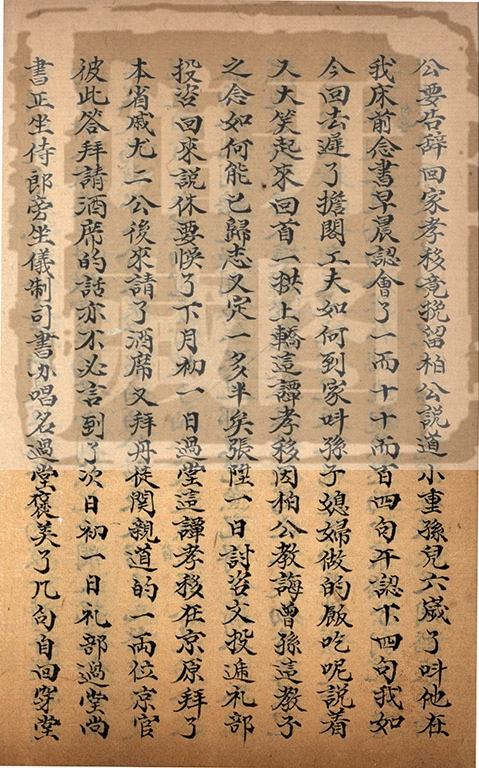 公要告辞回家孝移竟挽留柏公説道小重孫児六歳了呌他在
我床前念書早晨認會了一而十十而百四句下認下四句我如
今回去遅了擔閣工夫如何到家呌孫子媳婦做的飯吃呢説着
又大笑起來回首一拱上轎這譚孝移因柏公教誨曽孫這教子
之念如何能已歸志又定一多半矣張陞一日討咨文投逓礼部
投咨回來説休要悞了下月初一日過堂這譚孝移在京原拜了
本省戚尤二公後來請了酒席又拜丹徒関親道的一両位京官
彼此答拜請酒席的話亦不必言到了次日初一日礼部過堂尚
書正坐侍郎旁坐儀制司書办唱名過堂褒美了几句自回穿堂